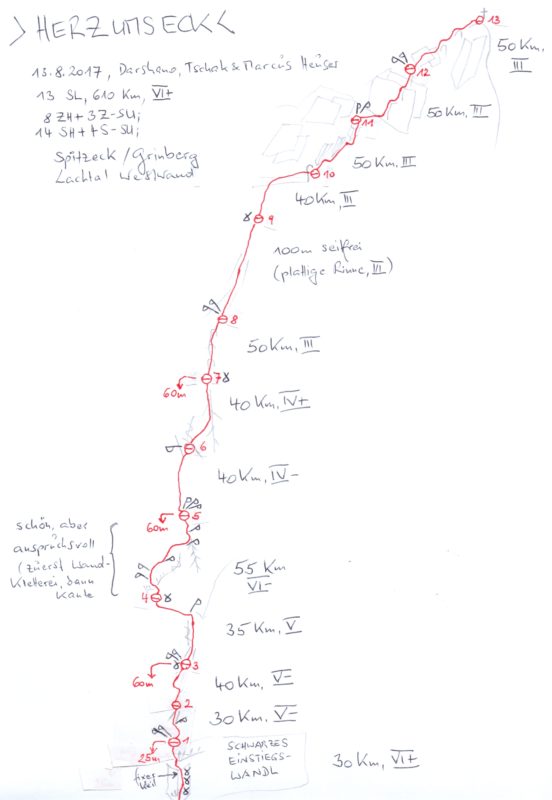 >HERZUMSECK<
13.8.2017, Darshano, Tschak & Marcus Heuser
13 SL, 610 Km, VI+
8 ZH + 3 Z-SU;
14 SH + 4 S-SU;
Spitzeck / Grinberg
Lachtal Westwand
13
50 Km
III
12
50 Km, III
11
50 Km, III
10
40 Km, III
9
100m seilfrei
(plattige Rinne, III)
8
50 Km, III
7
60m
40 Km, IV+
6
40 Km, IV-
5
60m
schön, aber
anspruchsvoll
(zuerst Wand-
kletterei, dann
Kante
55 Km
VI-
4
35 Km, V
3
60m
40 Km, V-
2
30 Km, V-
1
25m
SCHWARZES
EINSTIEGS-
WANDL
30 Km, VI+
fixer
Keil